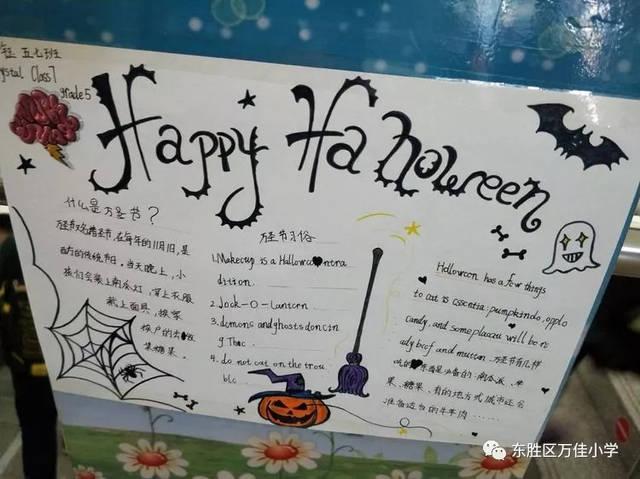 五七班
Crystal Class7
grade5
Happy Halloween
什么是万圣节?
万圣节又名诸圣节,在每年的11月1日,是
西方的传统节日,当天晚上,小
孩们会装上南瓜灯,穿上衣服
戴上面具,挨家
挨户的去收
集糖果。
万圣节习俗
1.Makeup is a Hallowe ntra
dition.
2.Jack-O-Lantern
3.demons and ghosts doncin
g Thac
4. do not cat on the trou
blc
Hellowcon has a few things
to cat is essentia: pumpkindo, applo
candy, and some placazu will be n
ady bicf and muttan. 万圣节有几样
东西是必备的:南瓜派、苹
果、糖果、有的地方式城市还会
准备适当的牛羊肉……
东胜区万佳小学